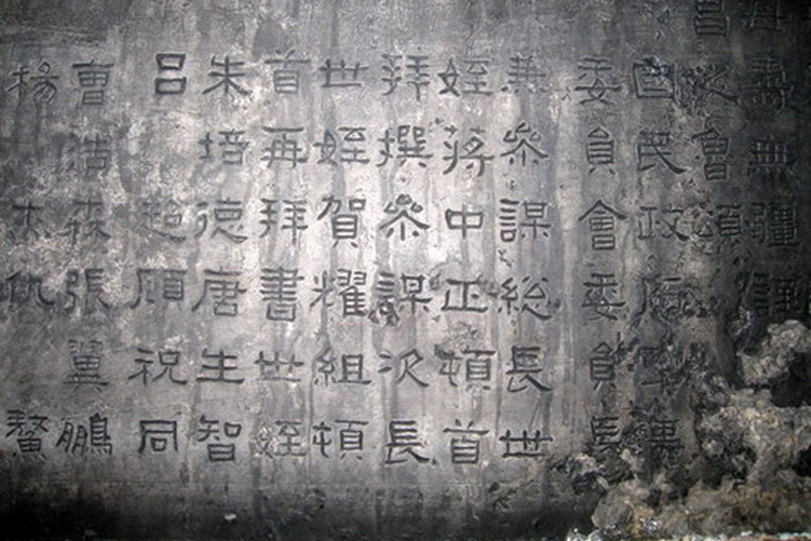 壽無疆謹
昌之會頌
國民政府軍事
委員會委員長
兼參謀総長世
姪蔣中正頓首
拜撰參謀次長
世姪賀耀組頓
首再拜書世姪
朱培德唐生智
呂超顧祝同
曹浩森張翼鵬
楊杰仇鰲